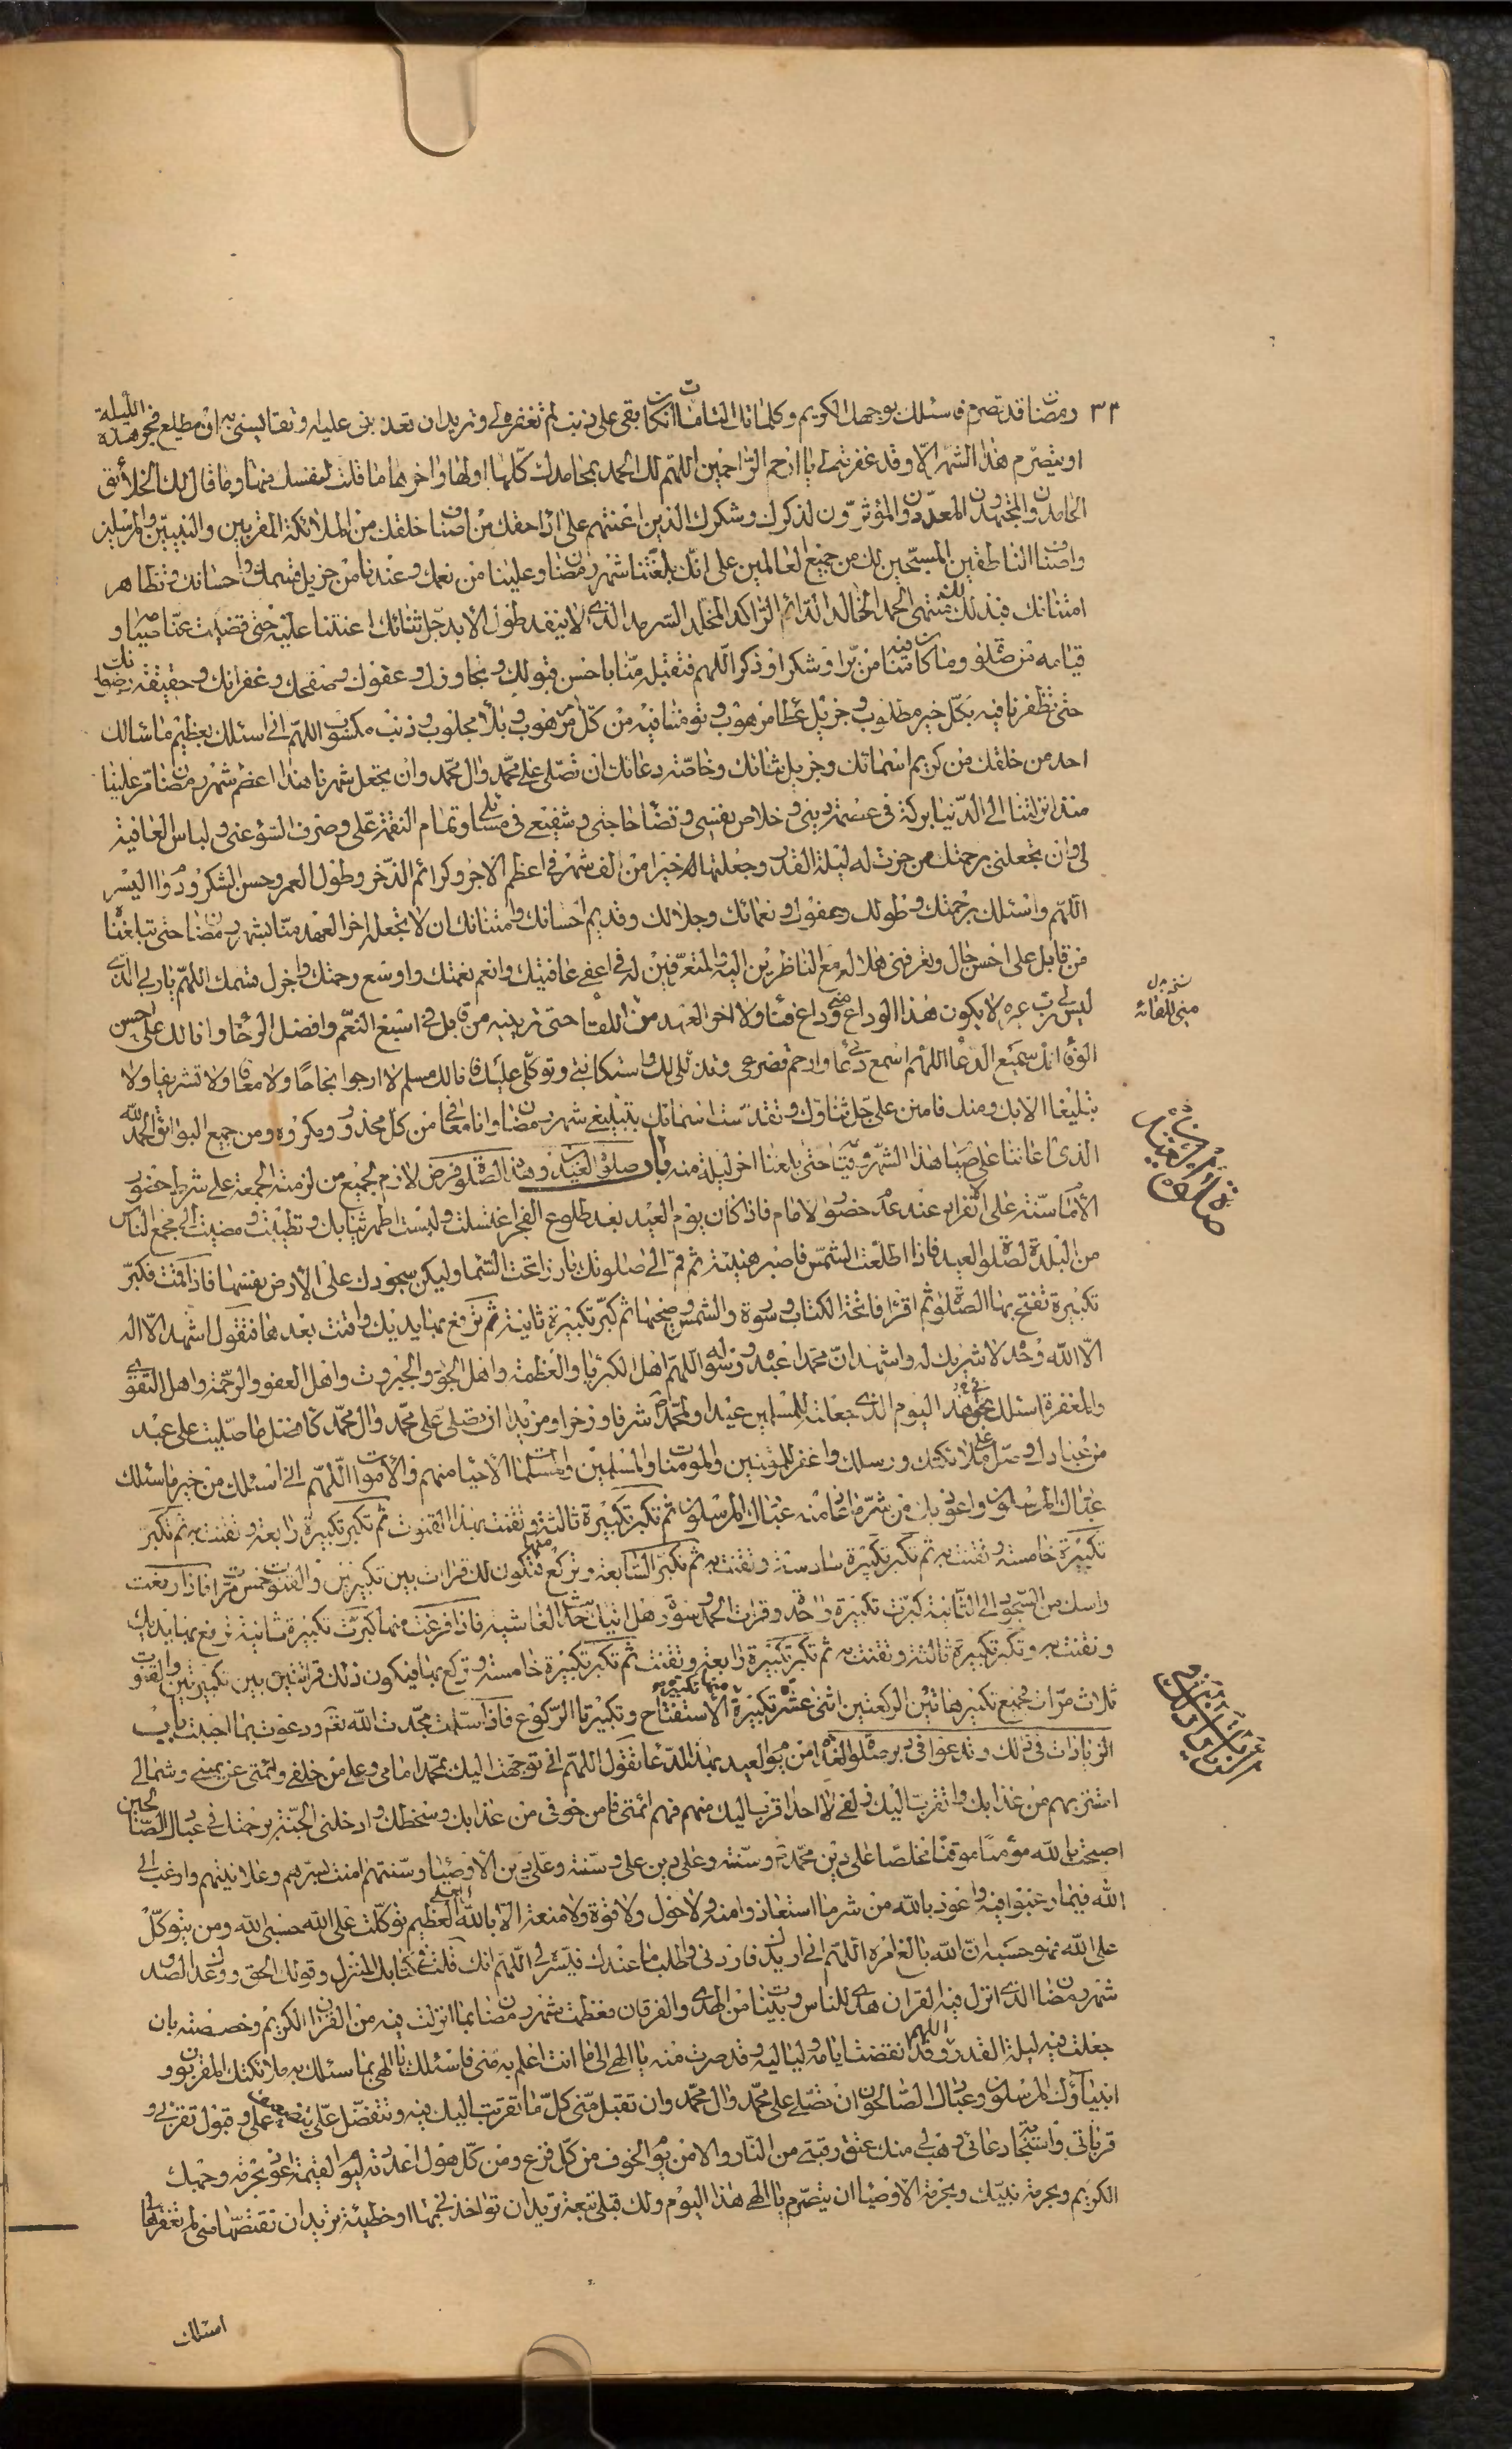 ٣٣ رمضان قد تصرم فاسئلك بوجهك الكريم وكلماتك التامات ان كان بقى على ذنب لم تغفره لى وتريد ان تعذبنى عليه وتقايسنى به ان مطلع فجر هذه الليلة
او يتصرم هذا الشهر الا وقد غفرته لى يا ارحم الراحمين اللهم لك الحمد بمحامدك كلها اولها واخرها ما قلت لنفسك منها وما قال لك الخلائق
الحامدون والمجتهدون المعدودون والمؤثرون لذكرك وشكرك الذين اعنتهم على اداء حقك من اصناف خلقك من الملائكة المقربين والنبيين والمرسلين
واصناف الناطقين المسبحين لك من جميع العالمين على انك بلغتنا شهر رمضان وعلينا من نعمك وعندنا من جزيل قسمك واحسانك وتظاهر
امتنانك فبذلك لك منتهى الحمد الخالد الدائم الراكد المخلد السرمد الذى لا ينفد طول الابد جل ثنائك اعنتنا عليه حتى قضيت عنا صيامه و
قيامه من صلوة وما كان منا فيه من بر او شكر او ذكر اللهم فتقبله منا باحسن قبولك وتجاوزك وعفوك وصفحك وغفرانك وحقيقة رضوانك
حتى تظفرنا فيه بكل خير مطلوب وجزيل عطاء موهوب وتؤمننا فيه من كل مرهوب وبلاء مجلوب وذنب مكسوب اللهم انى اسئلك بعظيم ما سئالك
احد من خلقك من كريم اسمائك وجزيل ثنائك وخاصة دعائك ان تصلى على محمد وال محمد وان تجعل شهرنا هذا اعظم شهر رمضان مر علينا
منذ انزلتنا الى الدنيا بركة فى عصمة دينى وخلاص نفسى وقضاء حاجتى وتشفيعى فى مسائلى وتمام النعمة على وصرف السوء عنى ولباس العافية
لى وان تجعلنى برحمتك ممن حزت له ليلة القدر وجعلتها له خيرا من الف شهر فى اعظم الاجر وكرائم الذخر وطول العمر وحسن الشكر ودوام اليسر
اللهم واسئلك برحمتك وطولك وعفوك ونعمائك وجلالك وقديم احسانك وامتنانك ان لا تجعله اخر العهد منا لشهر رمضان حتى تبلغناه
من قابل على احسن حال وتعرفنى هلاله مع الناظرين اليه والمتعرفين له فى اعفى عافيتك وانعم نعمتك واوسع رحمتك واجزل قسمك اللهم يا ربى الذى
ليس لى رب غيره لا يكون هذا الوداع منى وداع فناء ولا اخر العهد من اللقاء حتى ترينيه من قابل فى اسبغ النعم وافضل الرخاء وانا لك على احسن
الوفاء انك سميع الدعاء اللهم اسمع دعائى وارحم تضرعى وتذللى لك واستكانتى وتوكلى عليك فانا لك مسلم لا ارجوا نجاحا ولا معافاة ولا تشريفا ولا
تبليغا الا بك ومنك فامنن على جل ثناؤك وتقدست اسمائك بتبليغى شهر رمضان وانا معافى من كل محذور ومكروه ومن جميع البوائق الحمد لله
الذى اعاننا على صيام هذا الشهر وقيامه حتى بلغنا اخر ليلة منه باب صلوة العيد وهذه الصلوة فرض لازم لجميع من لزمته الجمعة على شرط حضور
الامام سنة على الانفراد عند عدم حضور الامام فاذا كان يوم العيد بعد طلوع الفجر اغتسلت ولبست اطهر ثيابك وتطيبت ومضيت الى مجمع الناس
من البلدة لصلوة العيد فاذا اطلعت الشمس فاصبر هنيئة ثم قم الى صلوتك بارزا تحت السماء وليكن سجودك على الارض نفسها فاذا قمت فكبر
تكبيرة تفتح بها الصلوة ثم اقرا فاتحة الكتاب وسورة والشمس وضحيها ثم كبر تكبيرة ثانية ثم ترفع بها يديك واقنت بعدها فتقول اشهد الا اله
الا الله وحده لا شريك له واشهد ان محمدا عبده ورسوله اللهم اهل الكبرياء والعظمة واهل الجود والجبروت واهل العفو والرحمة واهل التقوى
والمغفرة اسئلك بحق هذا اليوم الذى جعلته للمسلمين عيدا ولمحمد ص شرفا وذخرا ومزيدا ان تصلى على محمد وال محمد كافضل ما صليت على عبد
من عبادك وصل على ملائكتك ورسلك واغفر للمؤمنين والمؤمنات والمسلمين والمسلمات الاحياء منهم والاموات اللهم انى اسئلك من خير ما سئلك
عبادك المرسلون واعوذ بك من شر ما عاذ منه عبادك المرسلون ثم تكبر تكبيرة ثالثة وتقنت بهذا القنوت ثم تكبر تكبيرة رابعة وتقنت به ثم تكبر
تكبيرة خامسة وتقنت به ثم تكبر تكبيرة سادسة وتقنت به ثم تكبر السابعة وتركع بها فتكون لك قرائة بين تكبيرتين والقنوت خمس مرات فاذا رفعت
راسك من السجود الى الثانية كبرت تكبيرة واحدة وقرات الحمد وسورة هل اتيك حديث الغاشية فاذا فرغت منها كبرت تكبيرة ثانية ترفع بها يديك
وتقنت به وتكبر تكبيرة ثالثة وتقنت به ثم تكبر تكبيرة رابعة وتقنت ثم تكبر تكبيرة خامسة وتركع بها فيكون ذلك قرائتين بين تكبيرتين والقنوت
ثلاث مرات جميع تكبير هاتين الركعتين اثنى عشرة تكبيرة منها تكبيرة الاستفتاح وتكبيرتا الركوع فاذا سلمت مجدت الله تعم ودعوت بما احببت باب
الزيادات فى ذلك وتدعو فى دبر صلوة الغداة من يوم العيد بهذا الدعاء تقول اللهم انى توجهت اليك بمحمد امامى وعلى من خلفى وائمتى عن يمينى وشمالى
استتر بهم من عذابك واتقرب اليك زلفى لا احدا اقرب اليك منهم فهم ائمتى فامن خوفى من عذابك وسخطك وادخلنى الجنة برحمتك فى عبادك الصالحين
اصبحت بالله مؤمنا موقنا مخلصا على دين محمد ص وسنته وعلى دين على وسنته وعلى دين الاوصياء وسنتهم امنت بسرهم وعلانيتهم وارغب الى
الله فيما رغبوا فيه واعوذ بالله من شر ما استعاذوا منه ولا حول ولا قوة ولا منعة الا بالله العلى العظيم توكلت على الله حسبى الله ومن يتوكل
على الله فهو حسبه ان الله بالغ امره اللهم انى اريدك فاردنى واطلب ما عندك فيسره لى اللهم انك قلت فى كتابك المنزل وقولك الحق ووعدك الصدق
شهر رمضان الذى انزل فيه القران هدى للناس وبينات من الهدى والفرقان فعظمت شهر رمضان بما انزلت فيه من القران الكريم وخصصته بان
جعلت فيه ليلة القدر اللهم وقد انقضت ايامه ولياليه وقد صرت منه يا الهى الى ما انت اعلم به منى فاسئلك يا الهى بما سئلك به ملائكتك المقربون و
انبياؤك المرسلون وعبادك الصالحون ان تصلى على محمد وال محمد وان تقبل منى كل ما تقربت اليك فيه وتتفضل على بتضعيف عملى وقبول تقربى و
قرباتى واستجابة دعائى وهب لى منك عتق رقبتى من النار والامن يوم الخوف من كل فزع ومن كل هول اعددته ليوم القيمة اعوذ بحرمة وجهك
الكريم وبحرمة نبيك وبحرمة الاوصياء ان يتصرم يا الهى هذا اليوم ولك قبلى تبعة تريد ان تؤاخذنى بها او خطيئة تريد ان تقتصها منى لم تغفرها لى
اسئلك